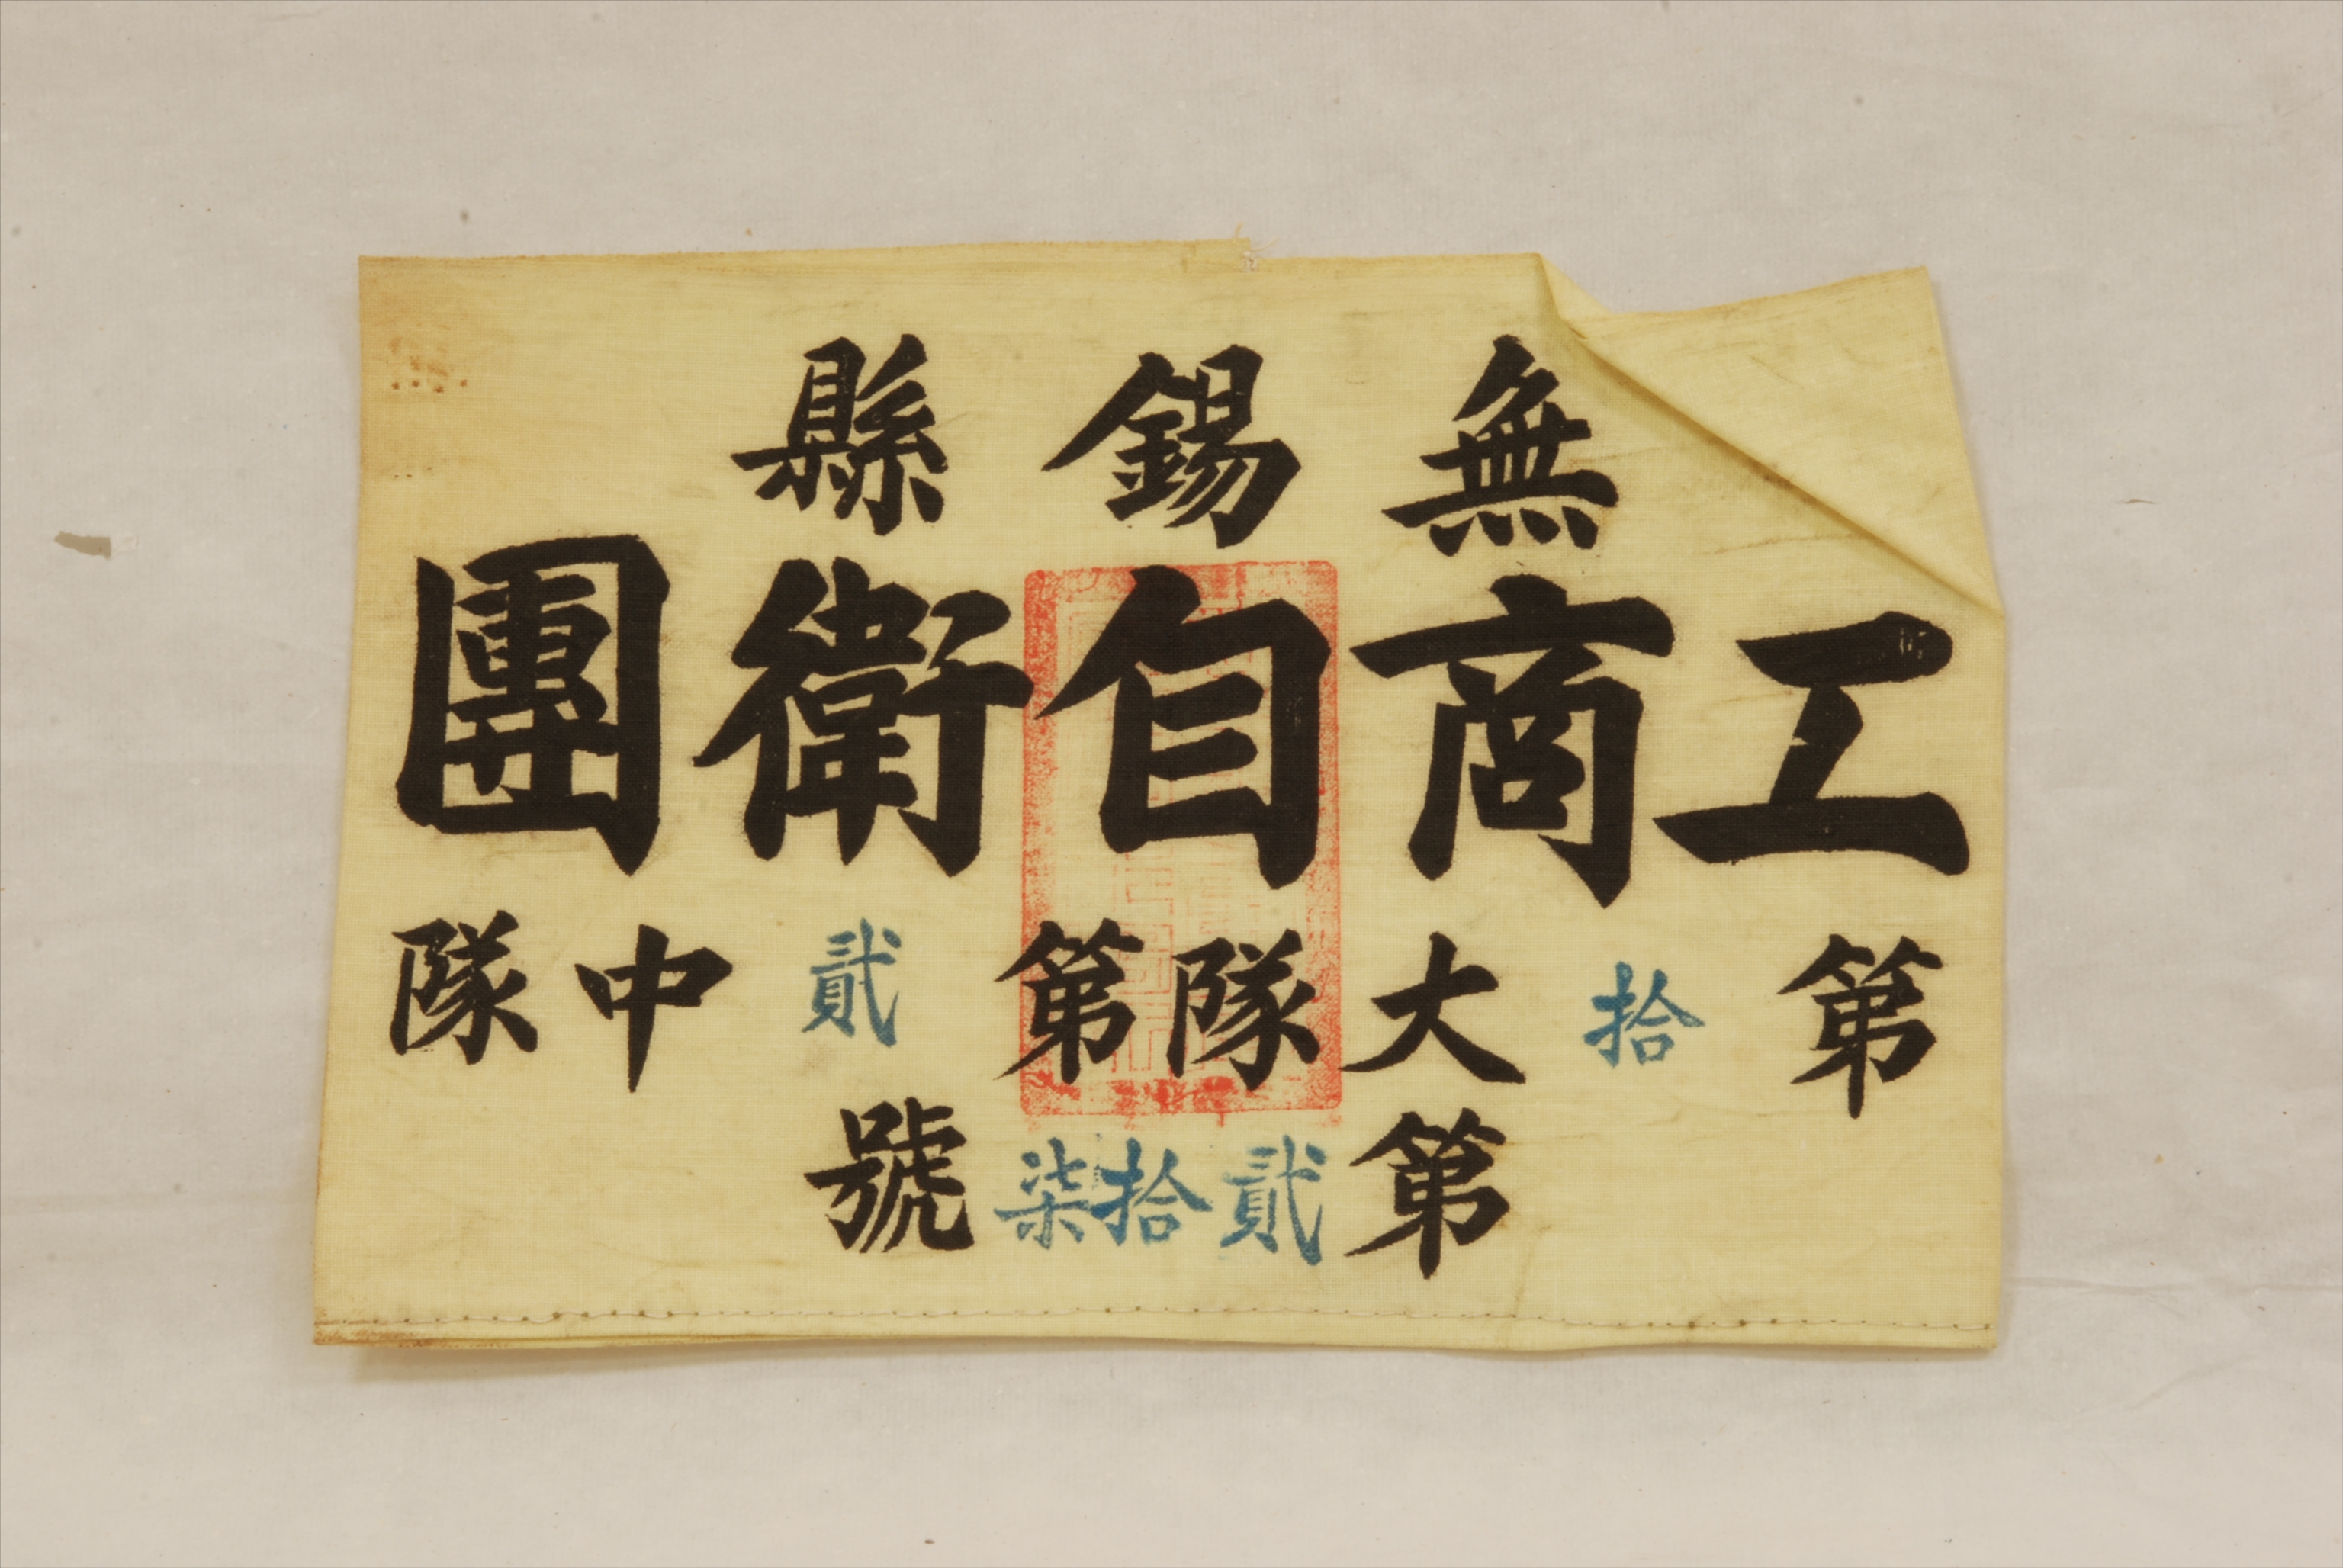 無錫縣
工商自衛團
第拾大隊第貳中隊
第貳拾柒號